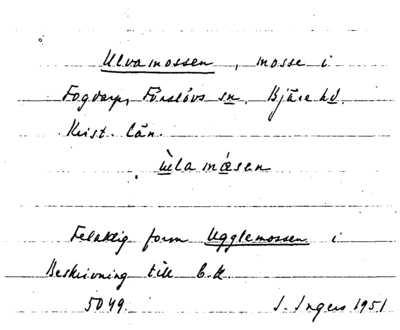 Ulvamossen, mosse i
Fogdarp, Förslövs sn. Bjäre hd.
Krist. län.
ùlamǿsen
Felaktig form Ugglemossen i
Beskrivning till E.K.
5049. I. Ingers 1951